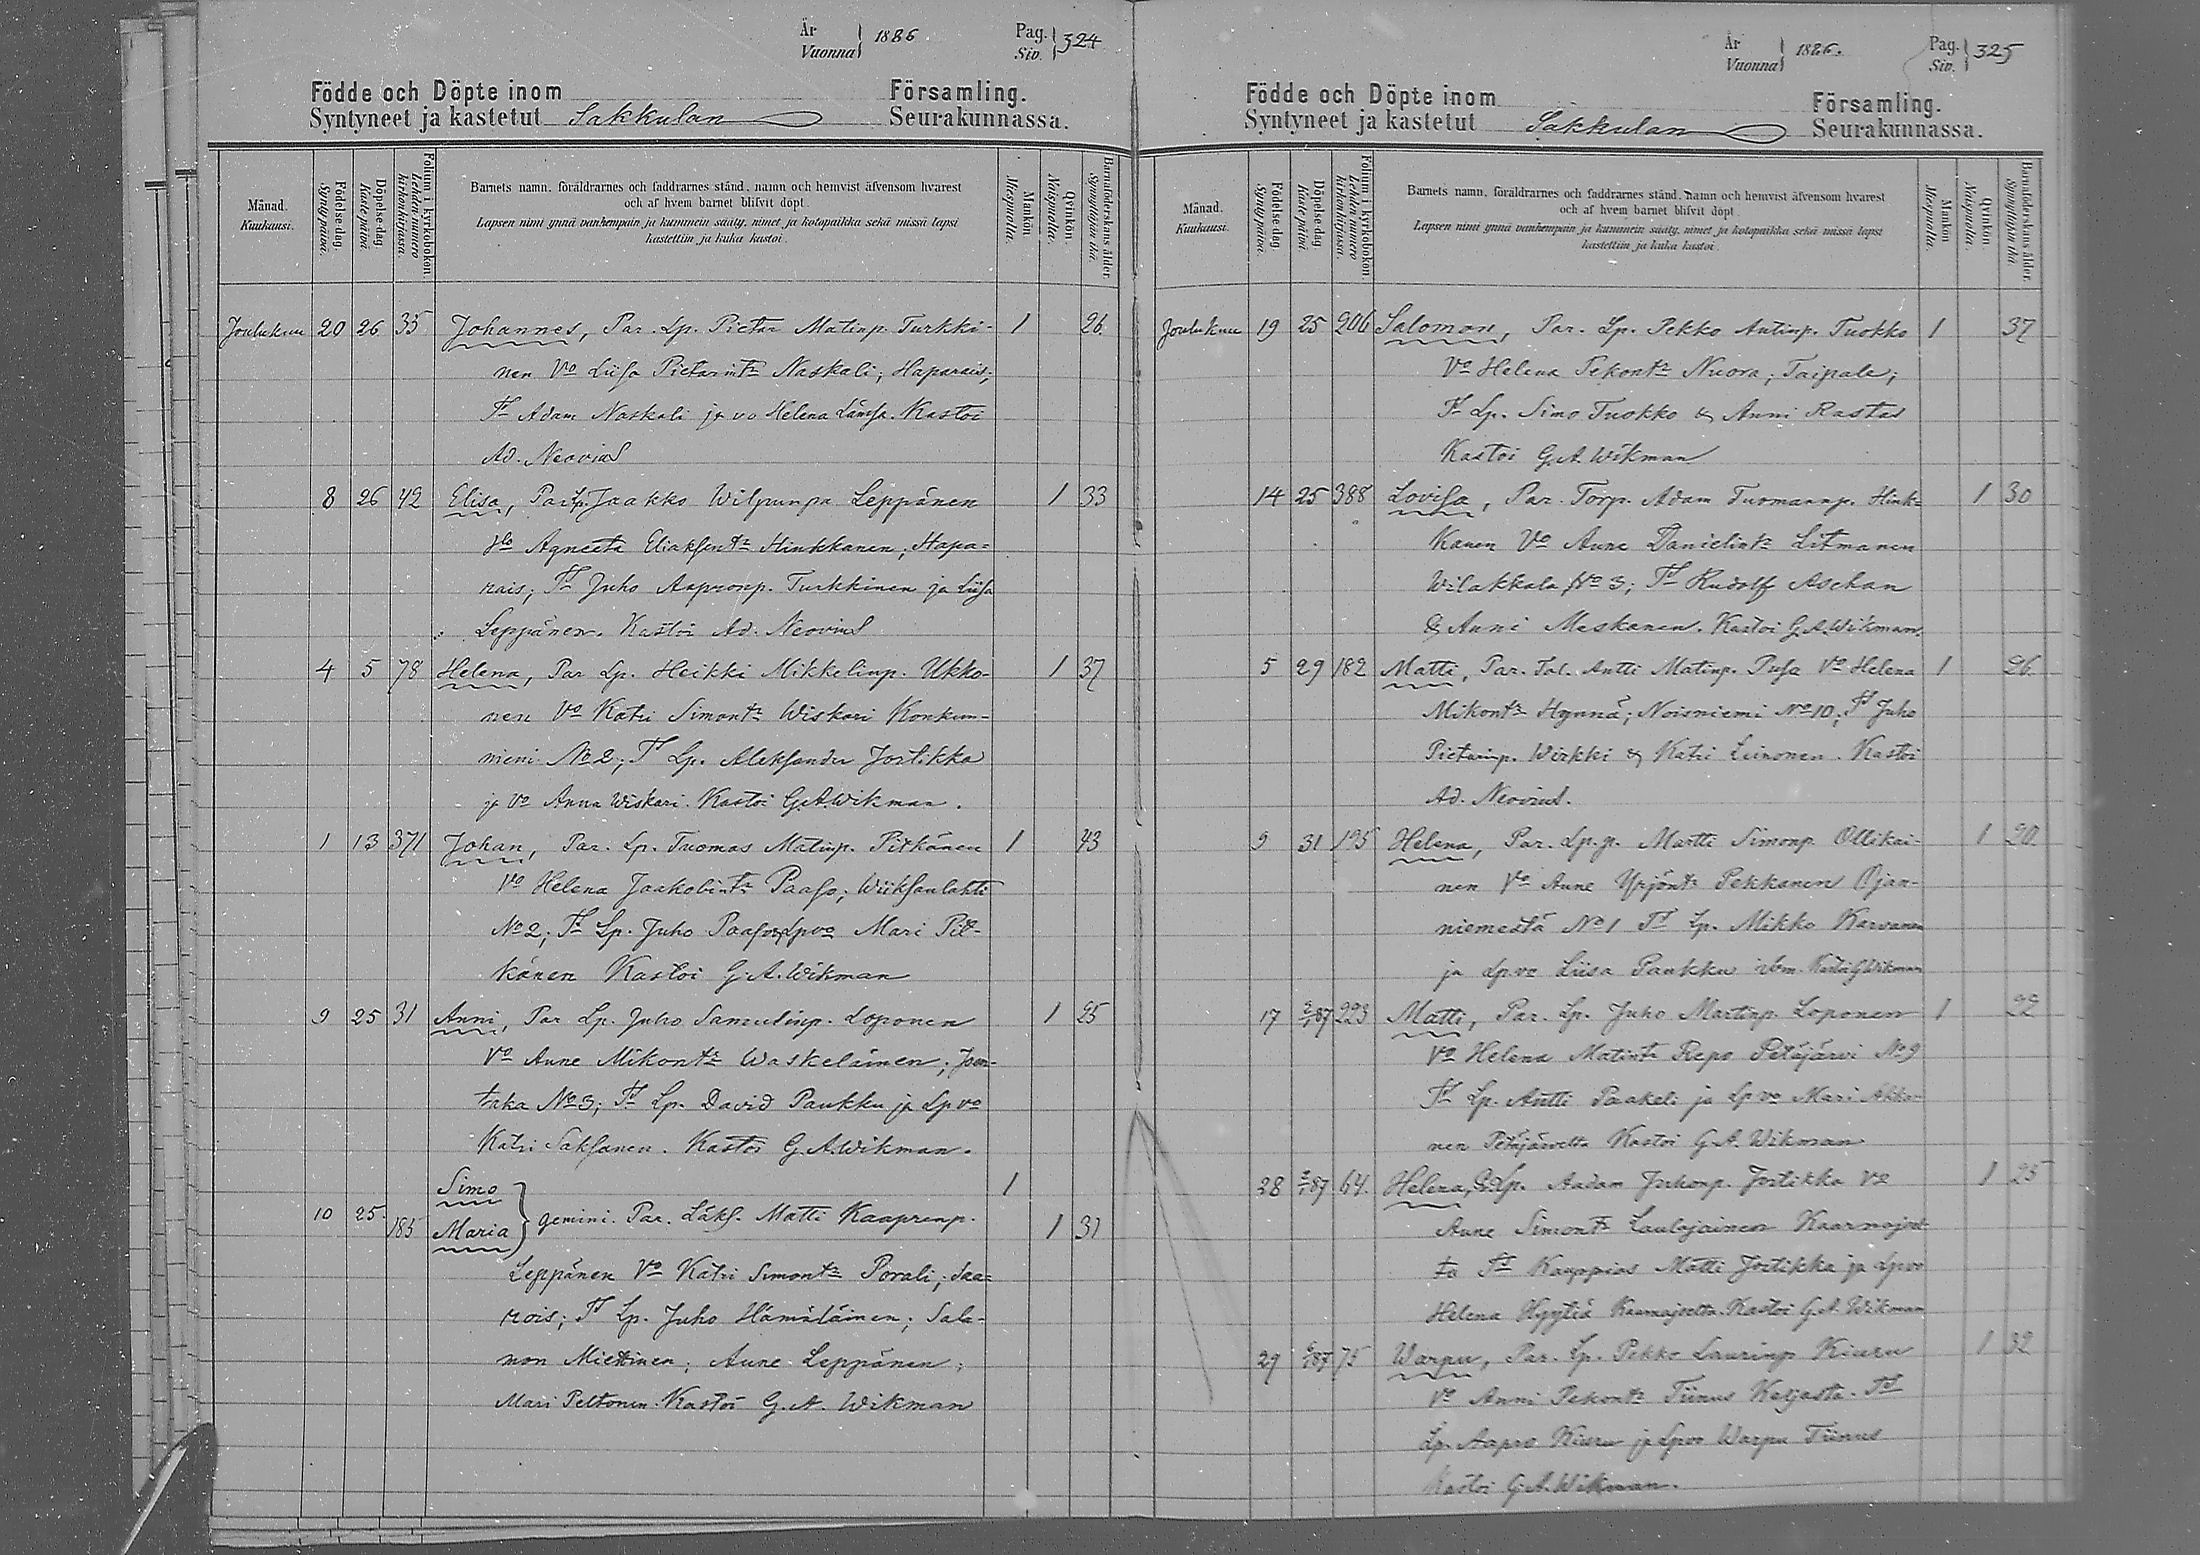 År
Vuonna 1886. Pag.
Siv. 324
Födde och Döpte inom Församling.
Syntyneet ja kastetut Sakkulan Seurakunnassa.
Månad.
Kuukausi.
Födelse-dag
Syntypäivä.
Döpelse-dag
Kastepäivä
Folium i kyrkoboken
Lehden numero
kirkonkirjassa.
Barnets namn, föräldrarnes och faddrarnes stånd, namn och hemvist äfvensom hvarest
och af hvem barnet blifvit döpt.
Lapsen nimi ynnä vanhempain ja kummein sääty, nimet ja kotopaikka sekä missä lapsi
kastettiin ja kuka kastoi.
Mankön
Miespuolia.
Qvinkön
Naispuolia.
Barnaföderskans ålder
Synnyttäjän ikä.
Joulukuu 20 26 35 Johannes, Par. Lp. Pietar Matinp. Turkki- 1 26.
nen Vo Liisa Pietarintr Naskali; Haparais;
Tt Adam Naskali ja vo Helena Lämsä. Kastoi
Ad. Neovius
8 26 42 Elisa, Par. Lp. Jaakko Wilpunpa Leppänen 1 33
Vo Agneeta Eliaksentr Hinkkanen; Hapa-
rais; Tt Juho Aapronp. Turkkinen ja Liisa
Leppänen. Kastoi Ad. Neovius
4 5 78 Helena, Par Lp. Heikki Mikkelinp. Ukko- 1 37
nen Vo Katri Simontr Wiskari Konkun-
niemi No 2; Tt Lp. Aleksander Jortikka
ja Vo Anna Wiskari. Kastoi G.A.Wikman.
1 13 371 Johan, Par. Lp. Tuomas Matinp. Pitkänen 1 43
Vo Helena Jaakobintr Paaso; Wiiksanlahti
No 2; Tt Lp. Juho Paaso & Lpvo Mari Pit-
känen Kastoi G.A.Wikman
9 25 31 Anni, Par Lp. Juho Samulinp. Loponen 1 25
Vo Aune Mikontr Waskelainen; Joen-
taka No 3; Tt Lp. David Paukku ja Lp vo
Katri Saksanen. Kastoi G.A.Wikman.
Simo 1
10 25. 185 Maria gemini. Par. Läks. Matti Kaaprenp. 1 31
Leppänen Vo Katri Simontr Porali; Saa-
rois; Tt Lp. Juho Hämäläinen; Salo-
mon Miettinen; Aune Leppänen;
Mari Peltonen. Kastoi G.A. Wikman
År
Vuonna 1886. Pag.
Siv. 325
Födde och Döpte inom Församling.
Syntyneet ja kastetut Sakkulan Seurakunnassa.
Månad.
Kuukausi.
Födelse-dag
Syntypäivä.
Döpelse-dag
Kastepäivä
Folium i kyrkoboken
Lehden numero
kirkonkirjassa.
Barnets namn, föräldrarnes och faddrarnes stånd, namn och hemvist äfvensom hvarest
och af hvem barnet blifvit döpt.
Lapsen nimi ynnä vanhempain ja kummein sääty, nimet ja kotopaikka sekä missä lapsi
kastettiin ja kuka kastoi.
Mankön
Miespuolia.
Qvinkön
Naispuolia.
Barnaföderskans ålder
Synnyttäjän ikä
Joulukuu 19 25 206 Salomon, Par. Lp. Pekko Antinp. Tuokko 1 37
Vo Helena Pekontr Nuora; Taipale;
Tt Lp. Simo Tuokko & Anni Rastas
Kastoi G.A. Wikman
14 25 388 Lovisa, Par. Torp. Adam Tuomaanp. Hink- 1 30
kanen Vo Anna Danielintr Litmanen
Wilakkala No 3; Tt Rudolf Aschan
& Anni Meskanen. Kastoi G.A.Wikman.
5 29 182 Matti, Par. Tal. Antti Matinp. Pusa Vo Helena 1 26.
Mikontr Hynnä; Noisniemi No 10; Tt Juho
Pietarinp. Wirkki & Katri Leinonen. Kastoi
Ad. Neovius.
9 31 195 Helena, Par. Lp.p. Martti Simonp. Ollikai- 1 20.
nen Vo Aune Yrjöntr Pekkanen Ojan-
niemestä No 1 Tt Lp. Mikko Karvanen
ja Lp vo Liisa Paukku ibm. Kastoi G.Wikman
17 2/1 87 223 Matti, Par. Lp. Juho Martinp. Loponen 1 22
Vo Helena Matintr Repo Petäjärvi No 9
Tt Lp. Antti Paakeli ja Lp vo Mari Ukko-
nen Petäjärveltä Kastoi G.A. Wikman
28 2/1 87 64. Helena, Lp. Aadam Juhonp. Jortikka Vo 1 25
Aune Simontr Laulajainen Kaarnajoel-
ta Tt Kauppias Matti Jortikka ja Lpvo
Helena Hyytiä Kaarnajoelta. Kastoi G.A. Wikman
29 6/1 87 75 Warpu, Par. Lp. Pekko Laurinp Kiuru 1 32
Vo Anni Pekontr Tiinus Keljasta. Tt
Lp. Aapro Kiuru ja Lpvo Warpu Tiinus
Kastoi G.A.Wikman.